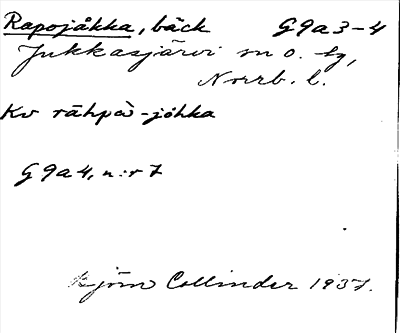 Rapojåkka, bäck G9a3-4
Jukkasjärvi sn o. tg,
Norrb. l.
Kv rāhpà-jóhka
G9a4, n:r 7
Björn Collinder 1937.